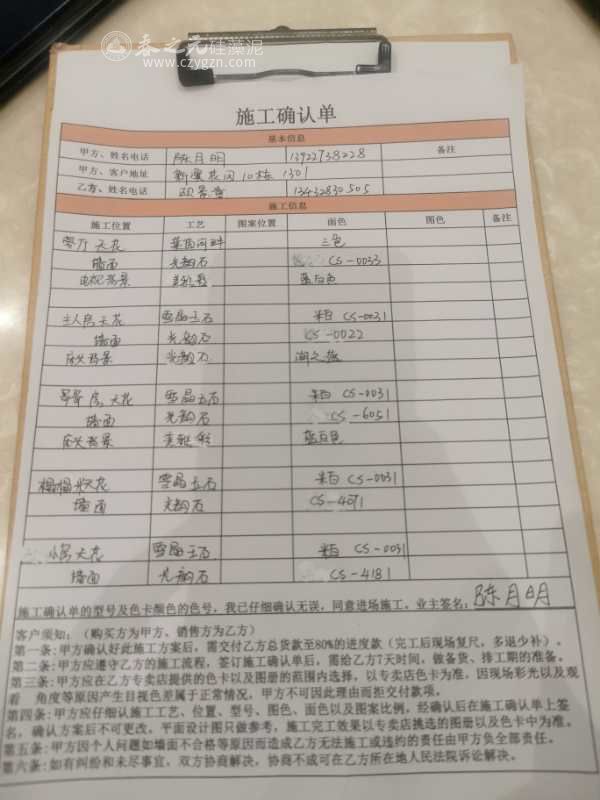 春之元硅藻泥
www.czygzn.com
施工确认单
基本信息
甲方、姓名电话 陈月明 13922738228 备注
甲方、客户地址 花园10栋1301
乙方、姓名电话 13432830505
施工信息
施工位置 工艺 图案位置 面色 图色 备注
客厅天花 三色
墙面 光韵石 CS-0033
电视背景 蓝白色
主人房天花 雪晶玉石 米白 CS-0031
墙面 光韵石 CS-0022
床头背景 光韵石
房天花 雪晶玉石 米白 CS-0031
墙面 光韵石 CS-6051
床头背景 蓝白色
榻榻米天花 雪晶玉石 米白 CS-0031
墙面 光韵石 CS-4071
小房天花 雪晶玉石 米白 CS-0031
墙面 光韵石 CS-4181
施工确认单的型号及色卡颜色的色号，我已仔细确认无误，同意进场施工。业主签名：陈月明
客户须知：（购买方为甲方、销售方为乙方）
第一条：甲方确认好此施工方案后，需交付乙方总货款至80%的进度款（完工后现场复尺，多退少补）。
第二条：甲方应遵守乙方的施工流程，签订施工确认单后，需给乙方7天时间，做备货、排工期的准备。
第三条：甲方应在乙方专卖店提供的色卡以及图册的范围内选择，以专卖店色卡为准，因现场彩光以及观
看 角度等原因产生目视色差属于正常情况，甲方不可因此理由而拒交付款项。
第四条：甲方应仔细认施工工艺、位置、型号、图色、面色以及图案比例，经确认后在施工确认单上签
名，确认方案后不可更改。平面设计图只做参考，施工完工效果以专卖店挑选的图册以及色卡中为准。
第五条：甲方因个人问题如墙面不合格等原因而造成乙方无法施工或违约的责任由甲方负全部责任。
第六条：如有纠纷和未尽事宜，双方协商解决，协商不成可在乙方所在地人民法院诉讼解决。